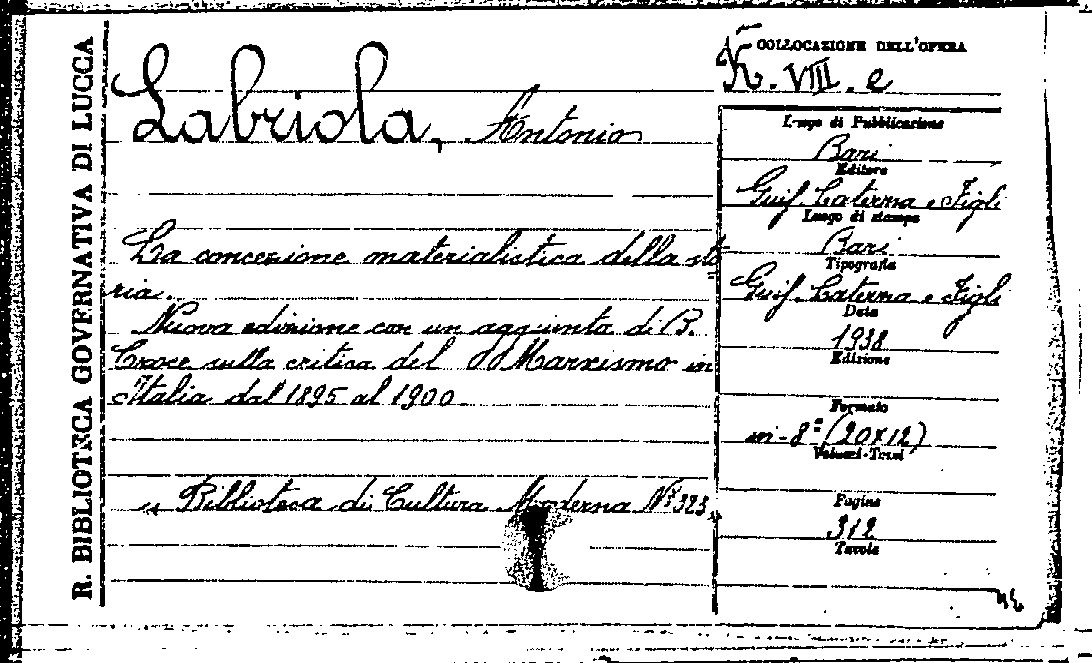 R. BIBLIOTECA GOVERNATIVA DI LUCCA
Labriola, Antonio
La concezione materialistica della sto
ria.
Nuova edizione con un aggiunta di B.
Croce sulla critica del Marxismo in
Italia dal 1895 al 1900.
"Biblioteca di Cultura Moderna N° 323"
COLLOCAZIONE DELL'OPERA
K. VIII. e
Luogo di Pubblicazione
Bari
Editore
Guis. Laterza e Figli
Luogo di stampa
Bari
Tipografia
Guis. Laterza e Figli
Data
1938
Edizione
Formato
in-8° (20x12)
Volumi-Tomi
Pagine
312
Tavole